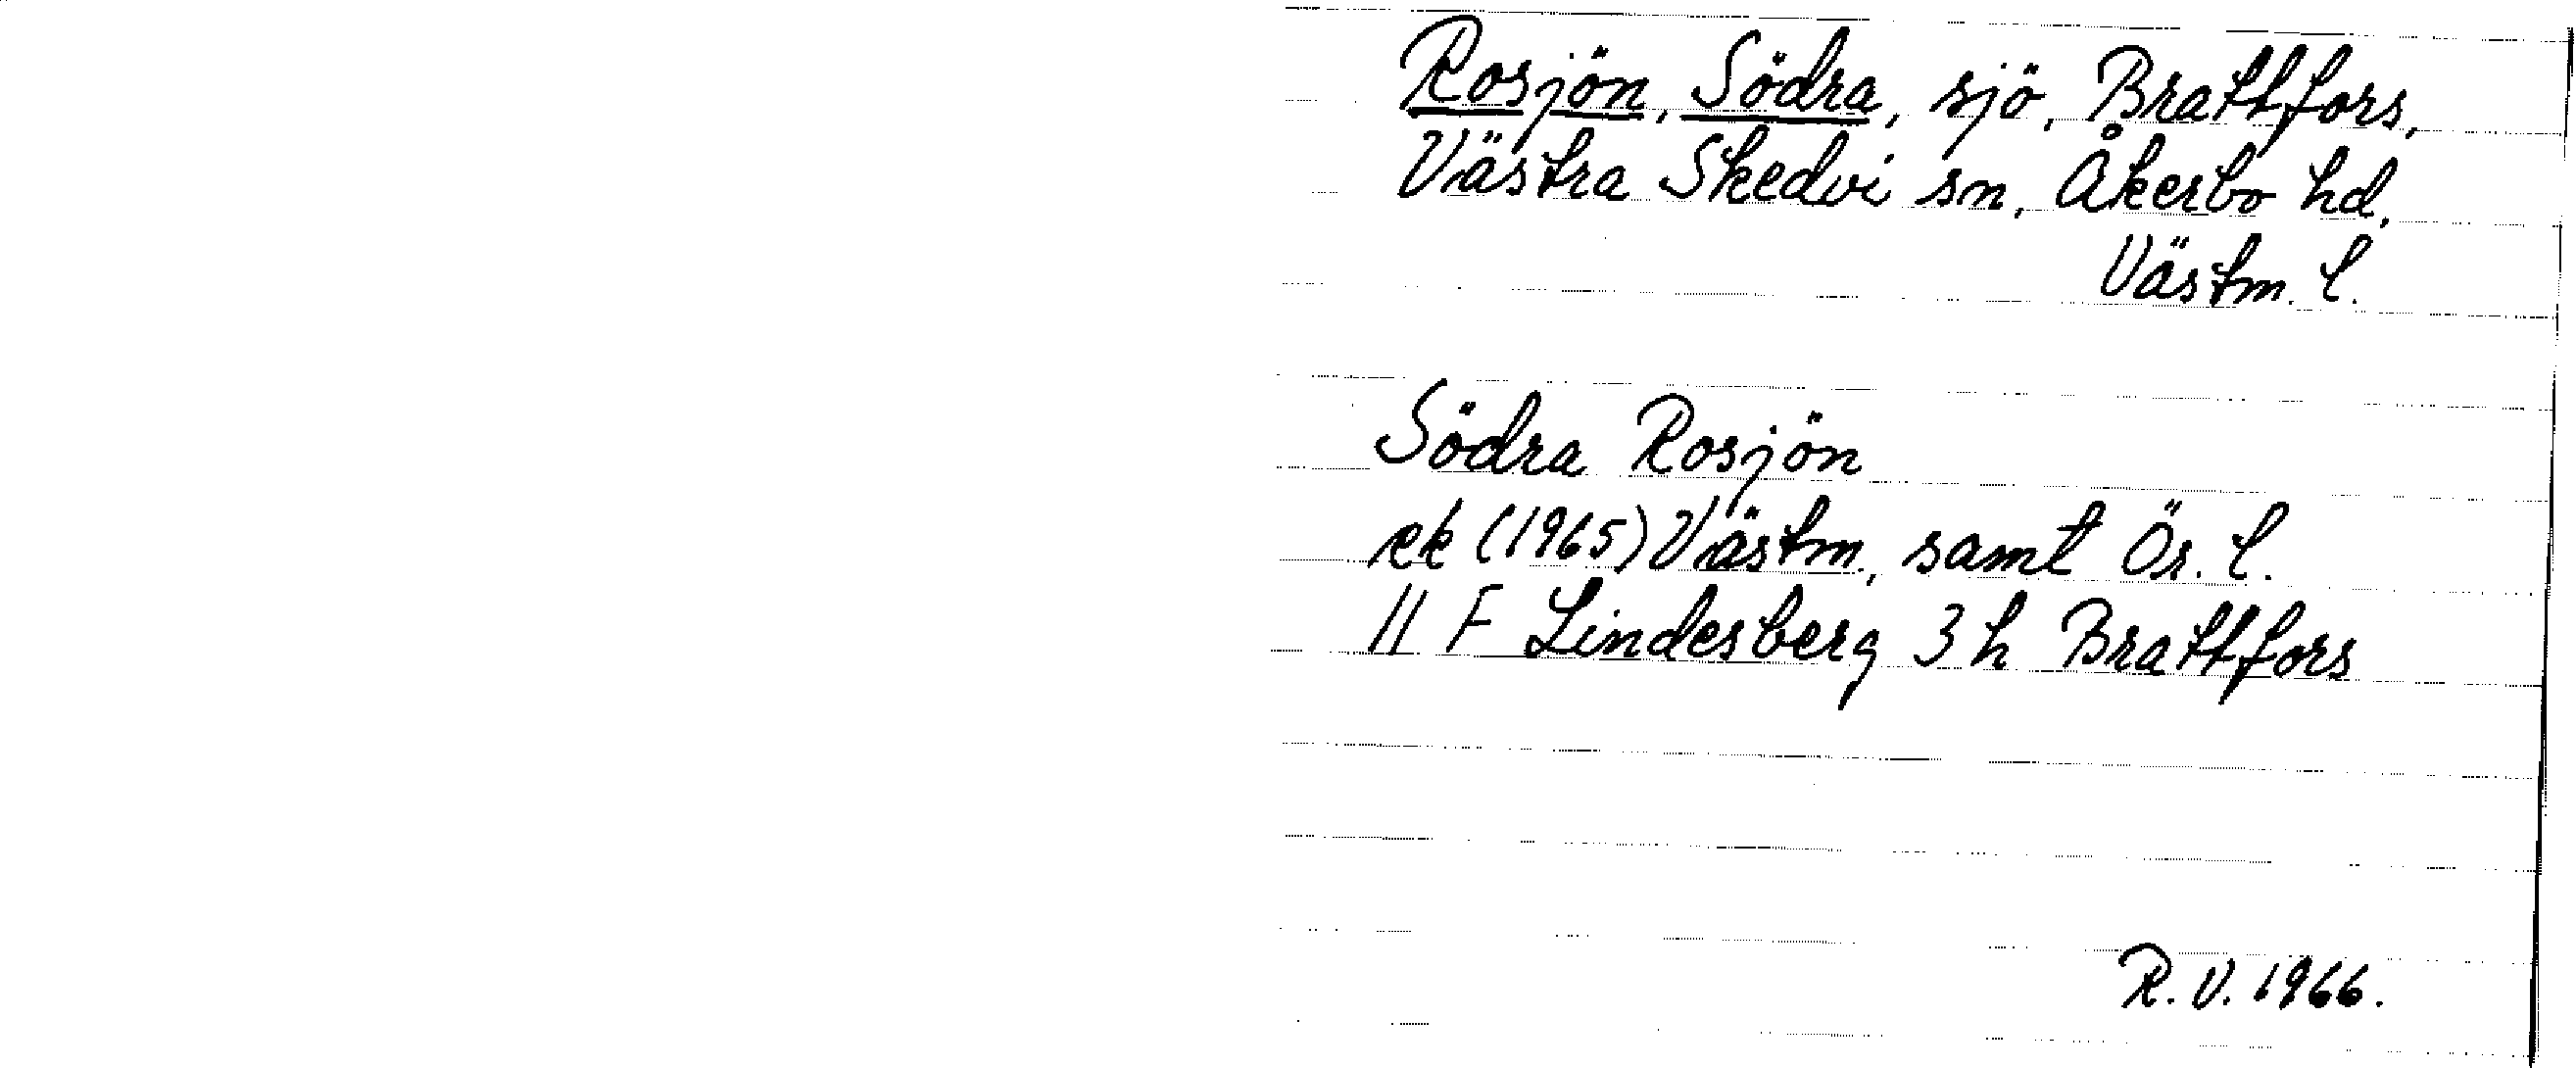 Rosjön, Södra, sjö, Brattfors,
Västra Skedvi sn, Åkerbo hd,
Västm. l.
Södra Rosjön
ek (1965) Västm., samt Ör. l.
11 F Lindesberg 3 h Brattfors
R. V. 1966.